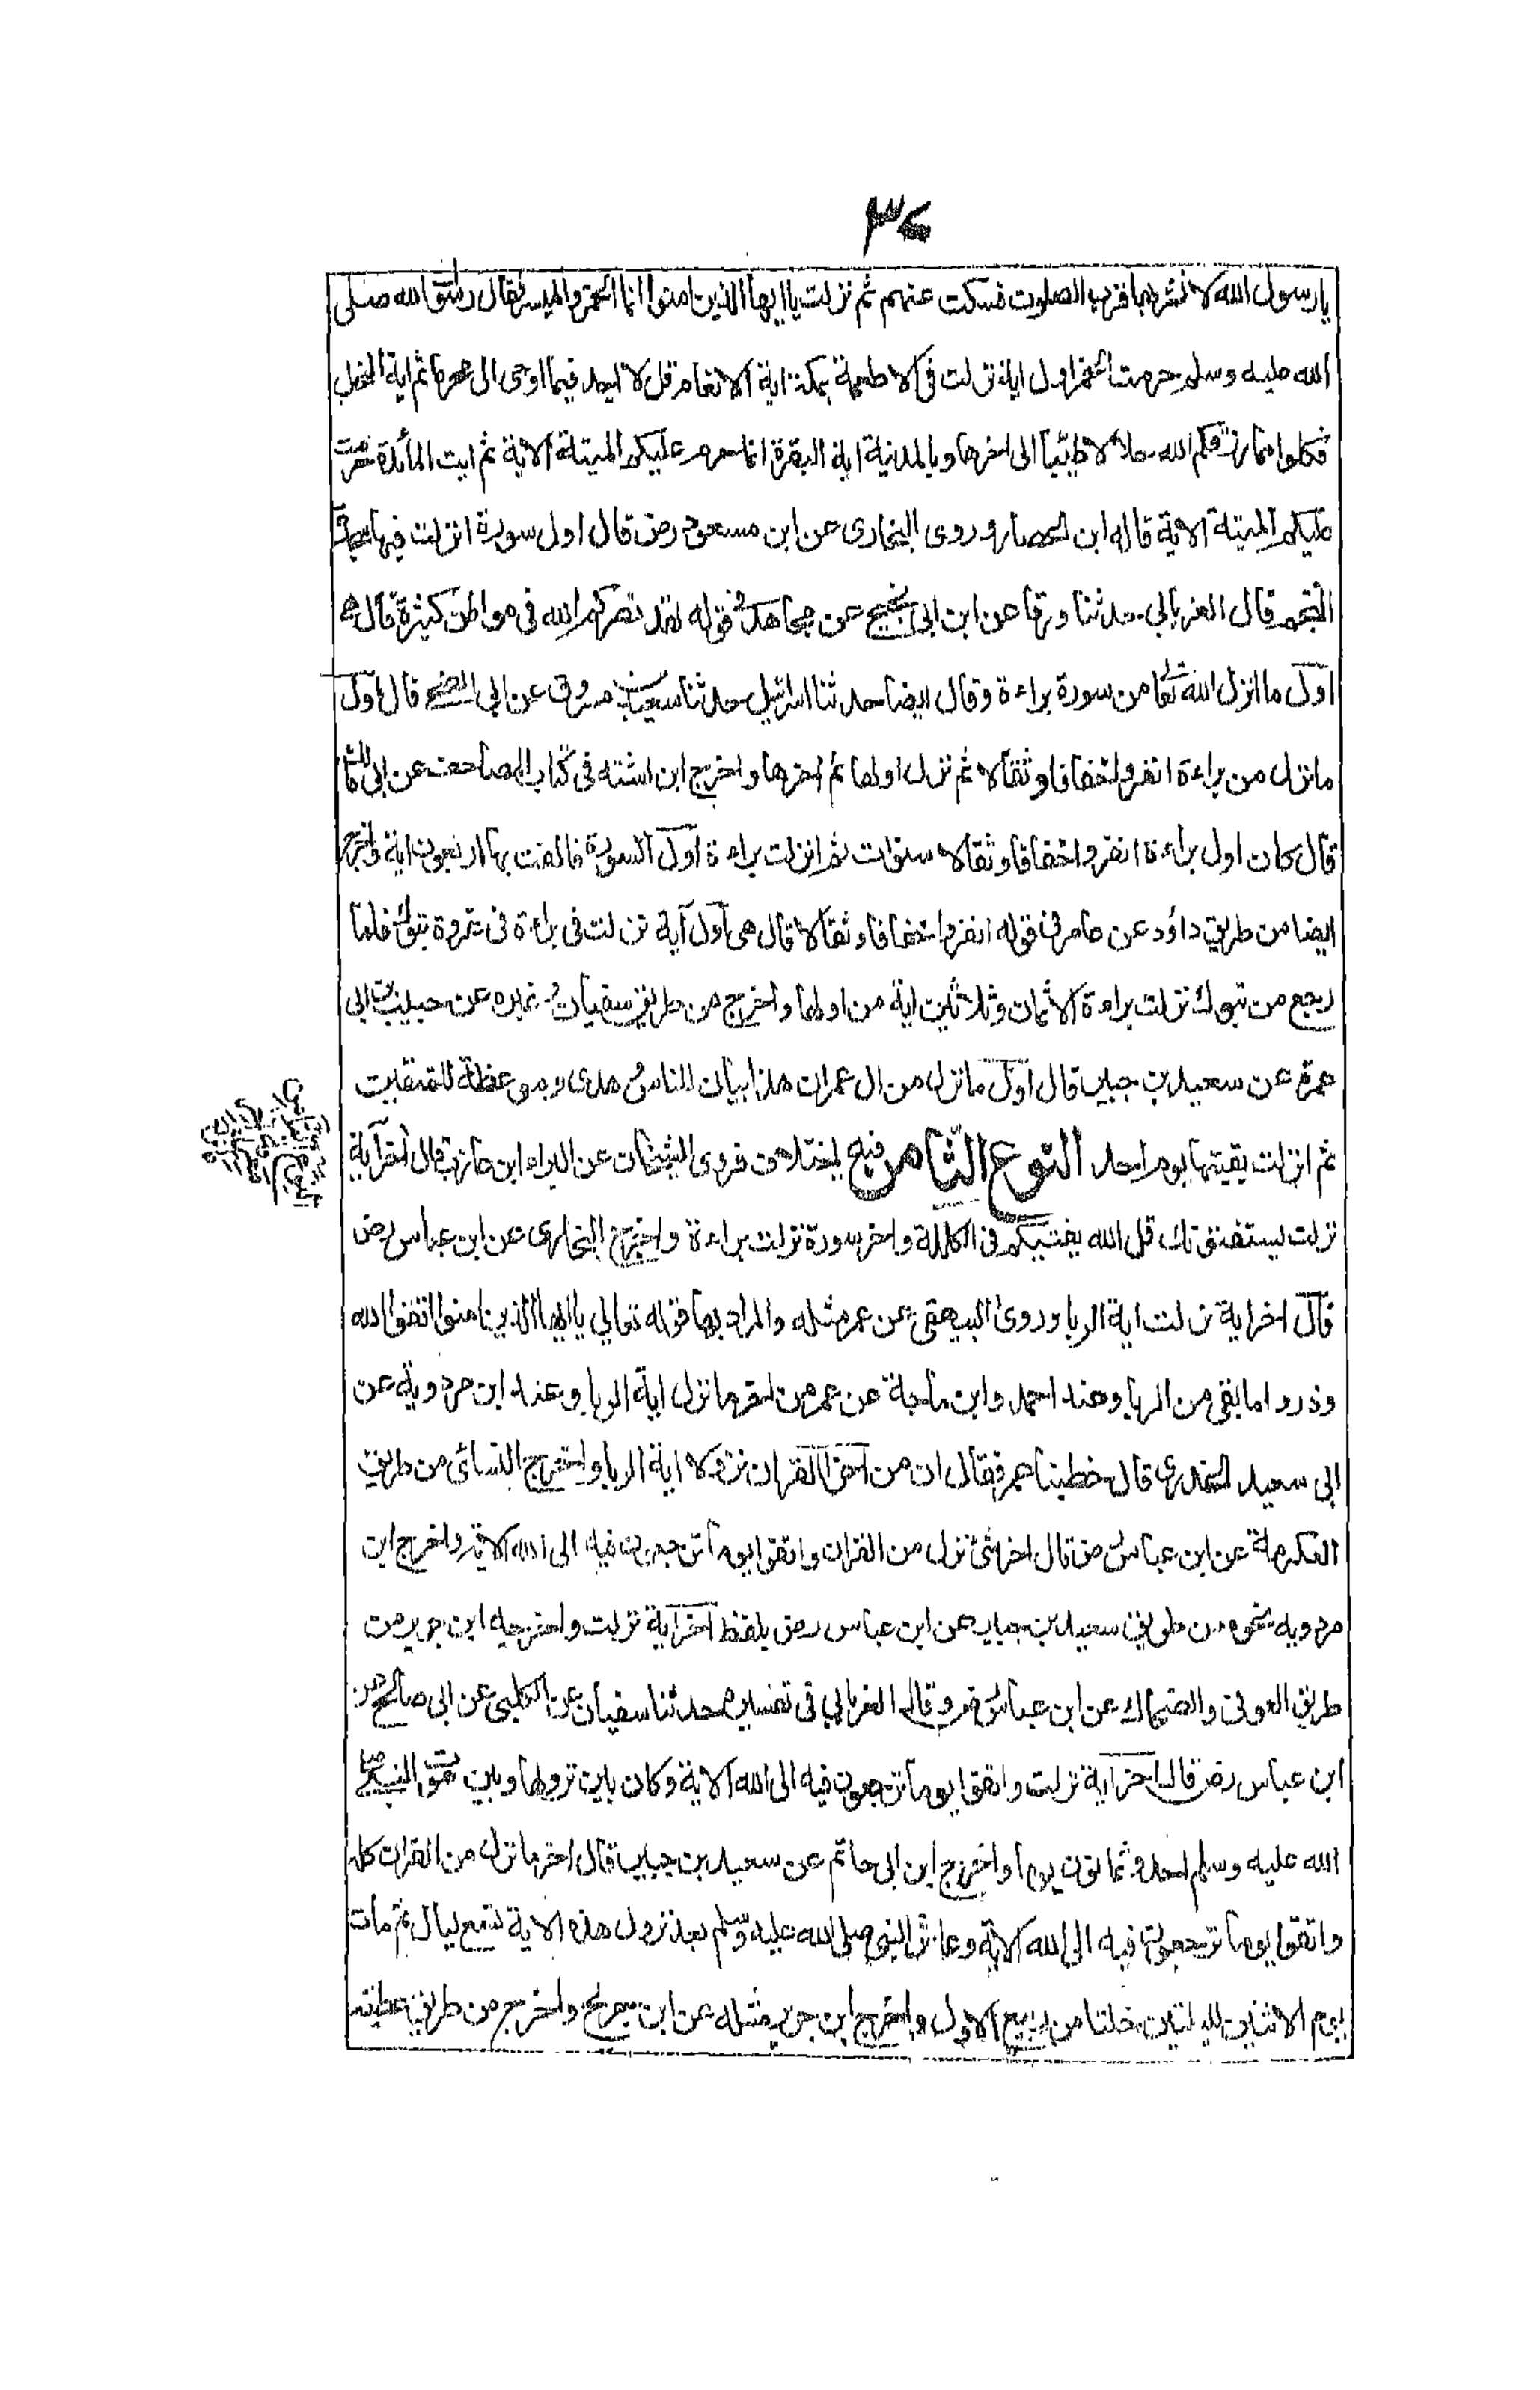 ٣٤
يا رسول الله لا نشربها قرب الصلوت فسكت عنهم ثم نزلت يا ايها الذين امنوا انما الخمر والميسر فقال رسول الله صلى
الله عليه وسلم حرمت الخمر اول اية نزلت فى الاطعمة بمكة اية الانعام قل لا اجد فيما اوحى الى محرما ثم اية النحل
فكلوا مما رزقكم الله حلالا طيبا الى اخرها وبالمدنية اية البقرة انما حرم عليكم الميتة الاية ثم ايت المائدة حرمت
عليكم الميتة الاية قاله ابن الحصار وروى البخارى عن ابن مسعود رض قال اول سورة انزلت فيها سجدة
النجم قال الفريابي حدثنا ورقا عن ابن ابى نجيح عن مجاهد فى قوله لقد نصركم الله فى مواطن كثيرة قال هى
اول ما انزل الله تعا من سورة براءة وقال ايضا حدثنا اسرائيل حدثنا سعيد بن مسروق عن ابى الضحى قال اول
ما نزل من براءة انفروا خفافا وثقالا ثم نزل اولها ثم اخرها واخرج ابن اشته فى كتاب المصاحف عن ابى مالك
قال كان اول براءة انفروا خفافا وثقالا سنوات ثم انزلت براءة اول السورة فالفت بها اربعون اية واخرج
ايضا من طريق داؤد عن عامر فى قوله انفروا خفافا وثقالا قال هى اول آية نزلت فى براءة فى غزوة تبوك فلما
رجع من تبوك نزلت براءة الا ثمان وثلاثين اية من اولها واخرج من طريق سفيان وغيره عن حبيب بن ابى
عمرة عن سعيد بن جبير قال اول ما نزل من ال عمران هذا بيان للناس وهدى وموعظة للمتقين
ثم انزلت بقيتها يوم احد النوع الثامن فيه اختلاف فروى الشيخان عن البراء ابن عازب قال آخر آية
نزلت يستفتونك قل الله يفتيكم فى الكلالة واخر سورة نزلت براءة واخرج البخارى عن ابن عباس رض
قال اخر اية نزلت اية الربا وروى البيهقى عن عمر مثله والمراد بها قوله تعالى يا ايها الذين امنوا اتقوا الله
وذروا ما بقى من الربا وعند احمد وابن ماجة عن عمر من اخر ما نزل اية الربا وعند ابن مردوية عن
ابى سعيد الخدرى قال خطبنا عمر فقال ان من آخر القران نزولا اية الربا واخرج النسائى من طريق
العكرمة عن ابن عباس رض قال اخر شئ نزل من القران واتقوا يوما ترجعون فيه الى الله الاية واخرج ابن
مردويه نحوه من طريق سعيد بن جبير عن ابن عباس رض بلفظ آخر آية نزلت واخرجه ابن جرير من
طريق العوفى والضحاك عن ابن عباس رض وقال الفريابي فى تفسيره حدثنا سفيان عن الكلبى عن ابى صالح عن
ابن عباس رض قال اخر اية نزلت واتقوا يوما ترجعون فيه الى الله الاية وكان بين نزولها وبين موت النبى صلى
الله عليه وسلم احد وثمانون يوما واخرج ابن ابى حاتم عن سعيد بن جبير قال اخر ما نزل من القران كله
واتقوا يوما ترجعون فيه الى الله الاية وعاش النبى صلى الله عليه وسلم بعد نزول هذه الاية تسع ليال ثم مات
يوم الاثنين لليلتين خلتا من ربيع الاول واخرج ابن جرير مثله عن ابن جريج واخرج من طريق عطية